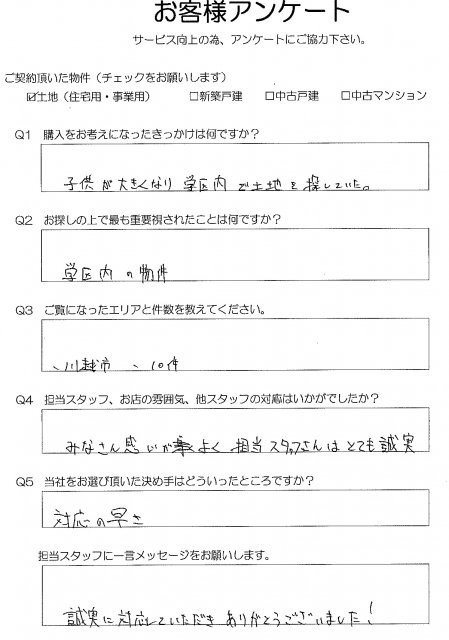 お客様アンケート
サービス向上の為、アンケートにご協力下さい。
ご契約頂いた物件（チェックをお願いします）
☑土地（住宅用・事業用） □新築戸建 □中古戸建 □中古マンション
Q1 購入をお考えになったきっかけは何ですか？
子供が大きくなり 学区内で土地を探していた。
Q2 お探しの上で最も重要視されたことは何ですか？
学区内の物件
Q3 ご覧になったエリアと件数を教えてください。
、川越市 、10件
Q4 担当スタッフ、お店の雰囲気、他スタッフの対応はいかがでしたか？
みなさん感じが よく 担当スタッフさんはとても誠実
Q5 当社をお選び頂いた決め手はどういったところですか？
対応の早さ
担当スタッフに一言メッセージをお願いします。
誠実に対応していただき ありがとうございました！